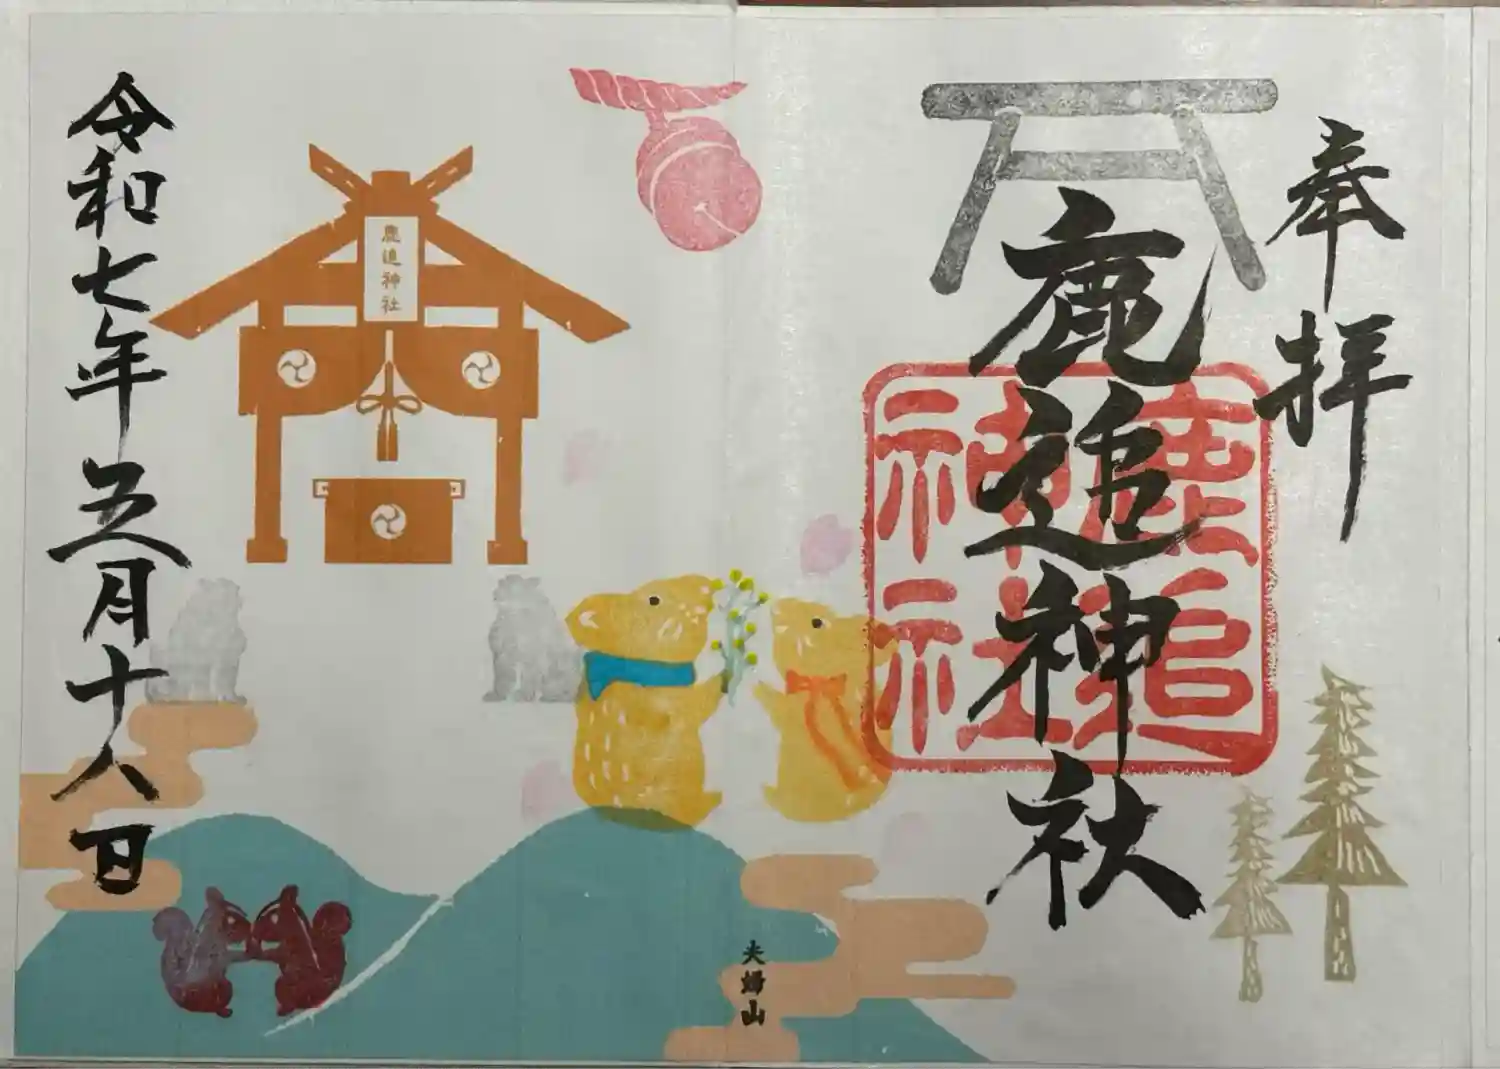 奉拝
鹿追神社
鹿追
神社
鹿追神社
夫婦山
令和七年五月十八日